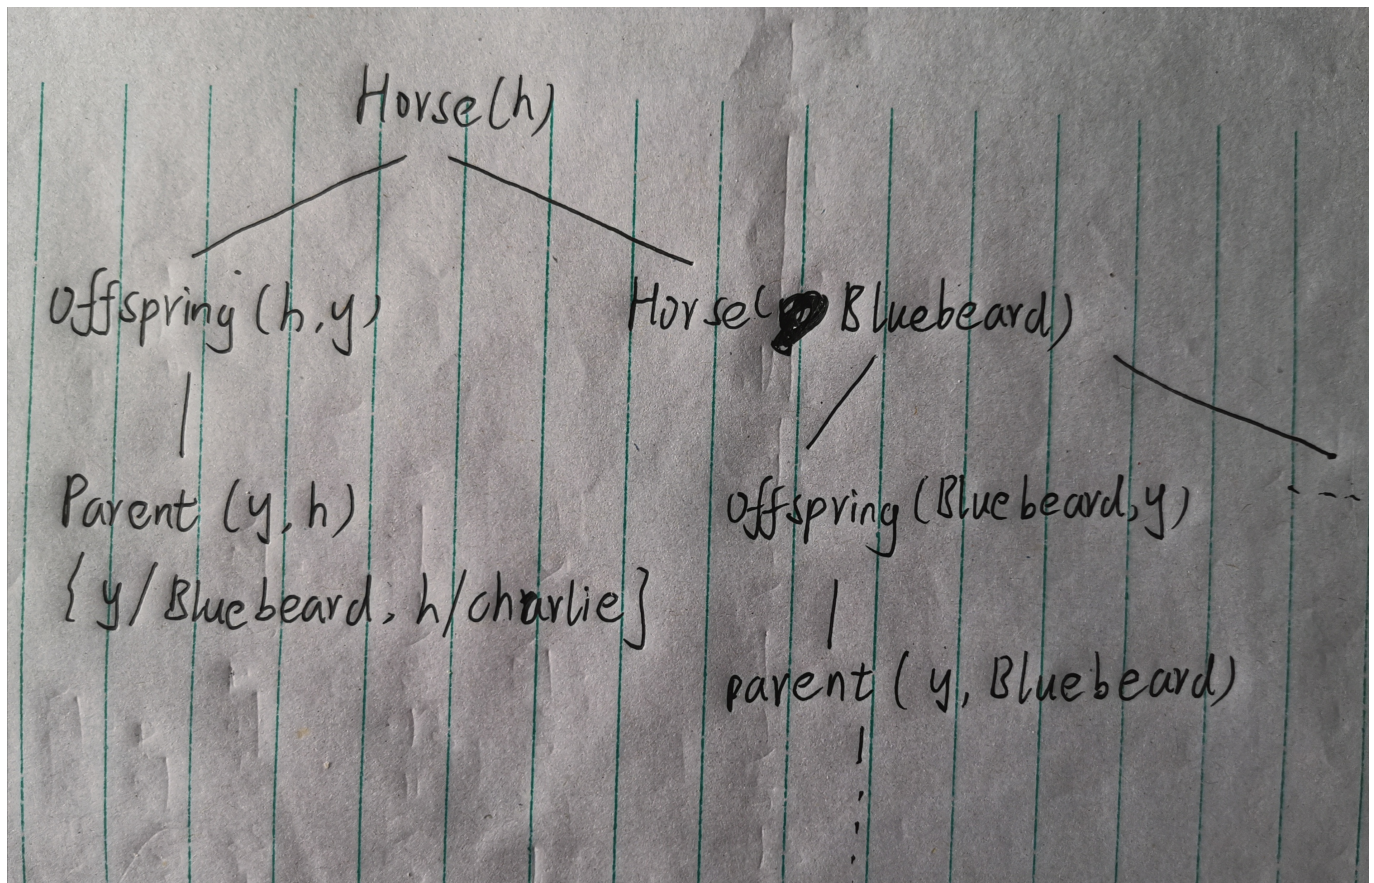 Horse(h)
Offspring (h,y)
Horse( Bluebeard)
Parent (y,h)
{y/Bluebeard, h/charlie}
Offspring (Bluebeard,y)
parent (y, Bluebeard)